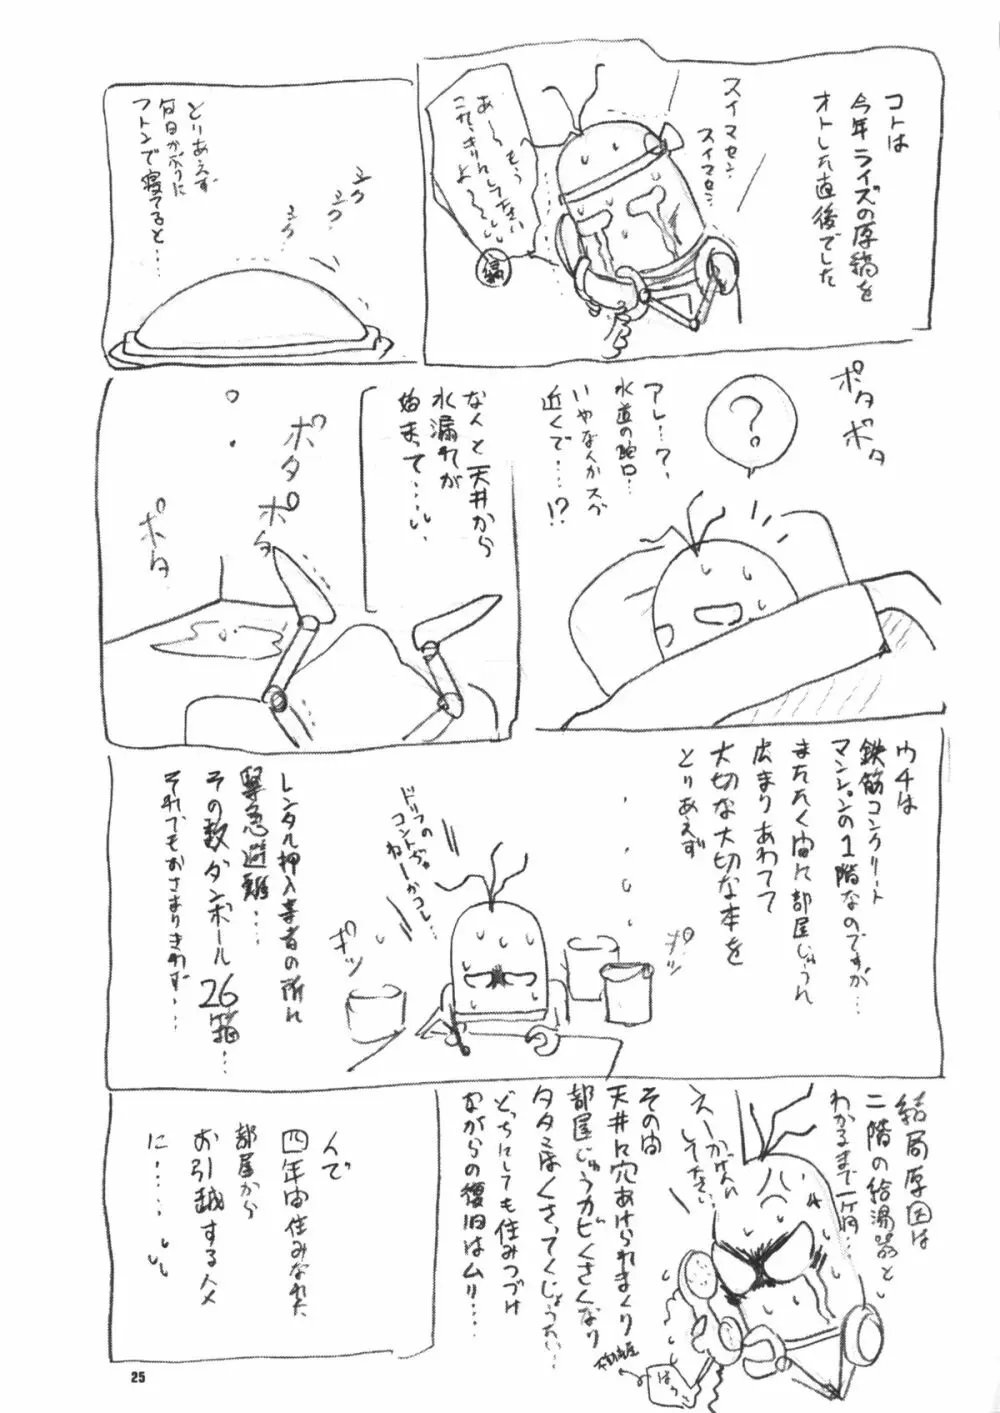 コトは
今年ライズの原稿を
オトした直後でした
スイマセン
スイマセン
あ〜〜もう
これっきりんしてくださいよ〜〜
編
とりあえず
毎日かわりに
フトンで寝てると…
シク
シク
シク
ポタ
ポタ
?
アレ…?
水道の蛇口…
いやなんかスゲ
近くで……!?
なんと天井から
水漏れが
始まって……
ポタ
ポタ
ポタ
ウチは
鉄筋コンクリート
マンションの1階なのですが…
またたく間に部屋じゅうに
広まりあわてて
大切な大切な本を
とりあえず
ポツ
ドリフの
コントかよ
ねーかコレ…
ポツ
レンタル押入業者の所に
緊急避難…
その数ダンボール26箱…
それでもおさまりきれず…
結局原因は
二階の給湯器と
わかるまで一ヶ月…
えーかげんに
してくださいっ
その間
天井に穴あけられまくり
部屋じゅうカビくさくなり
タタミはくさってくじょうたい…
どっちにしても住みつづけ
ながらの復旧はムリ……
んで
四年間住みなれた
部屋から
お引越するハメ
に……
25